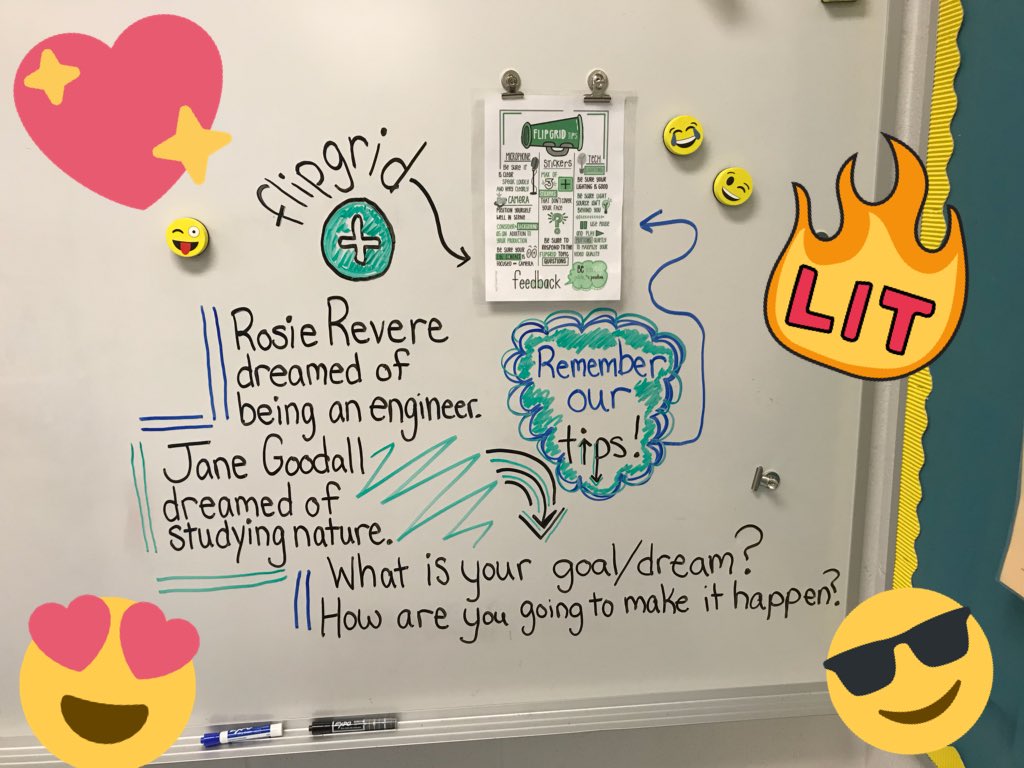 flipgrid
FLIPGRID TIPS
MICROPHONE
BE SURE IT
IS CLEAR
SPEAK LOUDLY
AND VERY CLEARLY
CAMERA
POSITION YOURSELF
WELL IN SCENE
AS AN ADDITION TO
YOUR PRODUCTION
BE SURE YOUR
FOCUSED on CAMERA
STICKERS
MAX OF
3
THAT DON'T COVER
YOUR FACE
BE SURE TO
RESPOND TO THE
FLIPGRID TOPIC
QUESTIONS
TECH
BE SURE YOUR
LIGHTING IS GOOD
BE SURE LIGHT
SOURCE ISN'T
BEHIND YOU
USE PAUSE
AND PLAY
TO MAXIMIZE YOUR
VIDEO QUALITY
feedback
BE
LIT
Rosie Revere
dreamed of
being an engineer.
Remember
our
tips!
Jane Goodall
dreamed of
studying nature.
What is your goal/dream?
How are you going to make it happen?
EXPO